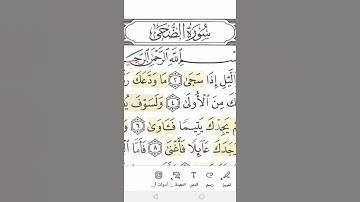 سُورَةُ الضُّحَىٰ
بِسْمِ اللَّهِ الرَّحْمَٰنِ الرَّحِيمِ
الَّيْلِ إِذَا سَجَىٰ ٢ مَا وَدَّعَكَ
مِنَ الْأُولَىٰ ٤ وَلَسَوْفَ
يَجِدْكَ يَتِيمًا فَـَٔاوَىٰ ٦
عَآئِلًا فَأَغْنَىٰ ٨ فَأَمَّا
تمييز رسم النص التعبئة ... أدوات أ...